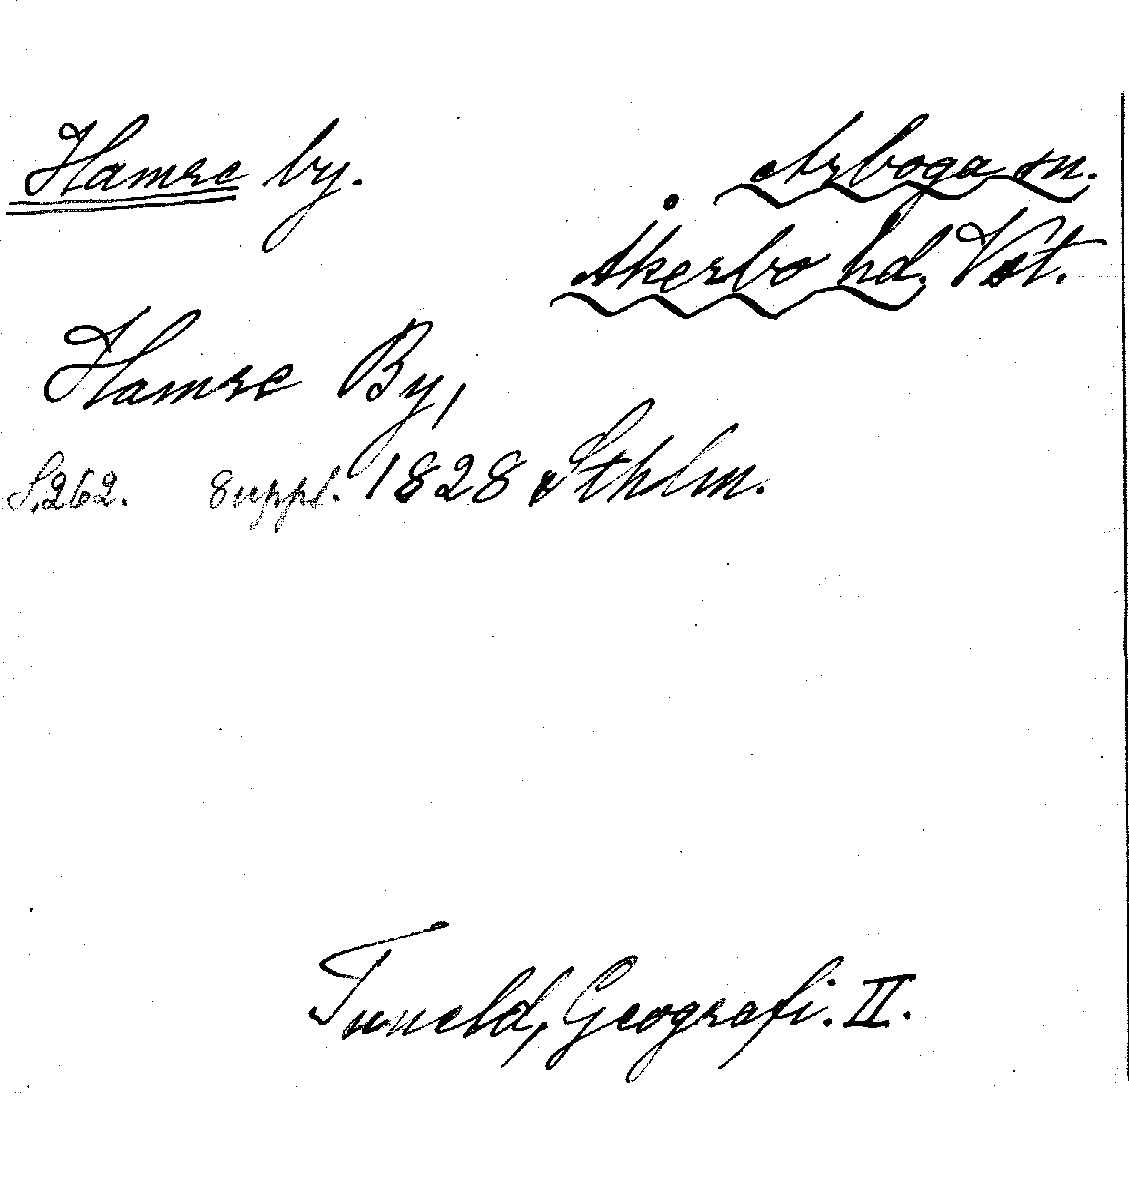 Hamre by. Arboga sn.
Åkerbo hd. Vst.
Hamre By,
S. 262. Suppl. 1828 Sthlm.
Tuneld, Geografi. II.